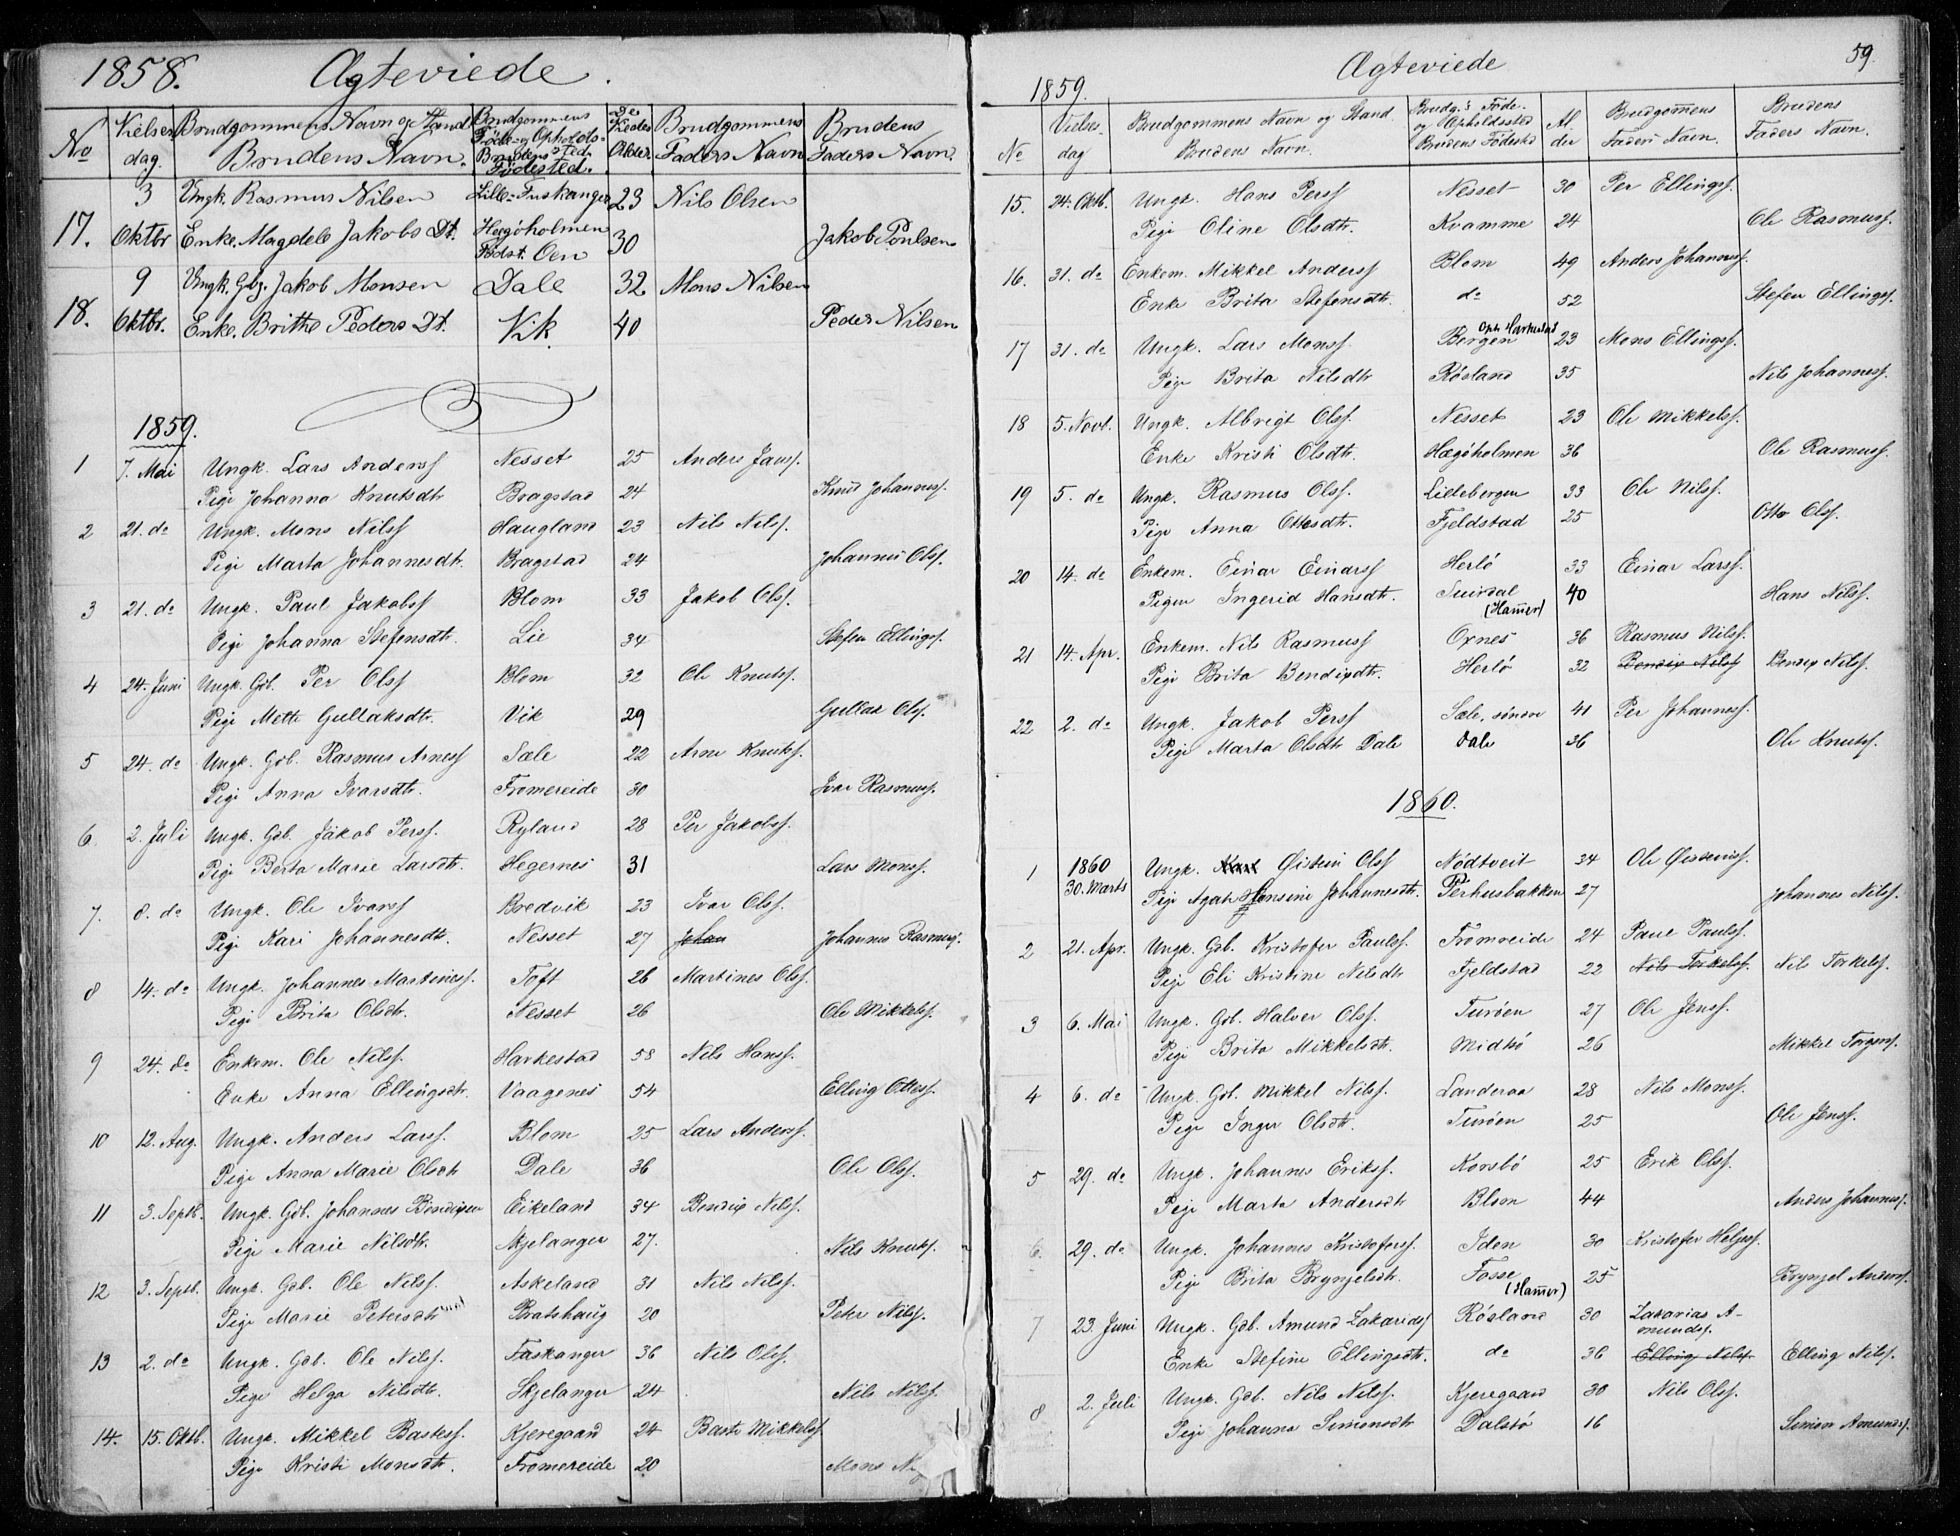 1858. Ægteviede.
No Vielses dag. Brudgommens Navn og Stand Brudens Navn. Brudgommens Föde- og Opholds-Sted Brudens Födested. De Viedes Alder. Brudgommens Faders Navn Brudens Faders Navn.
3 Ungk. Rasmus Nilsen Lille-Fuskanger 23 Nils Olsen
17. Oktbr Enke. Magdele Jakobs Dt. Hegöholmen Födst. Oen 30 Jakob Poulsen
9 Ungk. Gbr. Jakob Monsen Dale 32 Mons Nilsen
18. Oktbr. Enke. Brithe Peders Dt. Vik 40 Peder Nilsen
1859.
1 7. Mai Ungk. Lars Anderss Nesset 25 Anders Janss.
Pige Johanna Knutsdtr Bragstad 24 Knud Johanness.
2 21. do Ungk. Mons Nilss Haugland 23 Nils Nilss.
Pige Marta Johannesdtr. Bragstad 24 Johannes Olss.
3 21. do Ungk. Paul Jakobss Blom 33 Jakob Olss.
Pige Johanna Stefensdtr. Lie 34 Stefen Ellingss.
4 24. Juni Ungk. Gb. Per Olss Blom 32 Ole Knutss.
Pige Mette Gullaksdtr. Vik 29 Gullak Olss.
5 24. do Ungk. Gb. Rasmus Arness Sæle 22 Arne Knutss.
Pige Anna Ivarsdtr. Fromereide 30 Ivar Rasmuss.
6. 2. Juli Ungk. Gb. Jakob Perss. Ryland 28 Per Jakobss.
Pige Berta Marie Larsdtr. Hegernes 31 Lars Monss.
7. 8. do Ungk. Ole Ivarss Bredvik 23 Ivar Olss.
Pige Kari Johannesdtr. Nesset 27 Johan Johannes Rasmuss.
8 14. do Ungk. Johannes Martiness. Toft 26 Martines Olss.
Pige Brita Olsdtr. Nesset 26 Ole Mikkelss.
9 24. do Enkem. Ole Nilss. Harkestad 58 Nils Hanss.
Enke Anna Ellingsdtr. Vaagenes 54 Elling Ottess.
10 12. Aug. Ungk. Anders Larss. Blom 25 Lars Anderss.
Pige Anna Marie Olsdtr Dale 36 Ole Olss.
11 3. Septb. Ungk. Gb. Johannes Bendixen Eikeland 34 Bendix Nilss.
Pige Marie Nilsdtr. Skjelanger 27. Nils Knutss.
12 3. Septb. Ungk. Gb. Ole Nilss. Askeland 31 Nils Nilss.
Pige Marie Petersdtr Bratshaug 20 Peter Nilss.
13 2. do Ungk. Gb. Ole Nilss. Faskanger 36 Nils Olss.
Pige Helga Nilsdtr. Skjelanger 24 Nils Nilss.
14. 15. Oktb. Ungk. Mikkel Bastess. Kjeregaard 24 Baste Mikkelss
Pige Kristi Monsdtr. Fromereide 20 Mons
59.
Ægteviede
1859.
No Vielses dag Brudgommens Navn og Stand Brudens Navn. Brudg.s Föde- og Opholdssted Brudens Födested Alder Brudgom̄ens Faders Navn. Brudens Faders Navn.
15. 24. Oktb. Ungk. Hans Perss Nesset 30 Per Ellingss.
Pige Oline Olsdtr. Kvamme 24 Ole Rasmuss.
16. 31. do Enkem. Mikkel Anderss Blom 49 Anders Johanness.
Enke Brita Stefensdtr. do 52 Stefen Ellingss.
17 31. do Ungk. Lars Monss. Bergen Oph. Harkestad 23 Mons Ellingss.
Pige Brita Nilsdtr Rösland 35 Nils Johanness.
18 5. Novb. Ungk. Albrigt Olss. Nesset 23 Ole Mikkelss.
Enke Kristi Olsdtr. Hægöholmen 36 Ole Rasmuss.
19 5. do Ungk. Rasmus Olss. Lillebergen 33 Ole Nilss.
Pige Anna Ottesdtr. Fjeldstad 25 Otto Olss.
20 14. do Enkem. Einar Einarss Herlö 33 Einar Larss.
Pigen Ingerid Hansdtr. (Ham̄er) 40 Hans Nilss.
21 14. Apr. Enkem. Nils Rasmuss Oxnes 36 Rasmus Nilss.
Pige Brita Bendixdtr. Herlö 32 Bendix Nilss Bendix Nilss.
22 2. do Ungk. Jakob Perss Sæle, söndre 41 Per Johanness.
Pige Marta Olsdtr Dale Dale 36 Ole Knutss.
1860.
1 1860 30. Marts Ungk. Øistein Olss Nödtveit 34 Ole Øisteinss.
Pige Agate Hansine Johannesdtr. Perhusbakken 27 Johannes Nilss.
2 21. Apr. Ungk. Gb. Kristofer Paulss. Fromreide 24 Paul Paulss.
Pige Eli Kristine Nilsdtr Fjeldstad 22 Nils Torkelss. Nils Torkelss.
3 6. Mai Ungk. Gb. Halver Olss. Turöen 27 Ole Jenss.
Pige Brita Mikkelsdtr. Midtö 26 Mikkel Torgerss.
4 6. do Ungk. Gb. Mikkel Nilss. Landeraa 28 Nils Monss.
Pige Inger Olsdtr. Turöen 25 Ole Jenss.
5 29. do Ungk. Johannes Erikss. Korsbö 25 Erik Olss.
Pige Marta Andersdtr Blom 44 Anders Johanness.
6. 29. do Ungk. Johannes Kristoferss. Iden 30 Kristofer Heljess.
Pige Brita Brynjelsdtr. Fosse (Ham̄er) 25 Brynjel Anderss.
7 23. Juni Ungk. Gb. Amund Zakariass Rösland 30 Zakarias A-mundss.
Enke Stefine Ellingsdtr. do 36 Elling Nilss. Elling Nilss.
8 2. Juli Ungk. Gb. Nils Nilss. Kjeregaard 30 Nils Olss.
Pige Johanna Simonsdtr Dalstö 16 Simon Amundss.